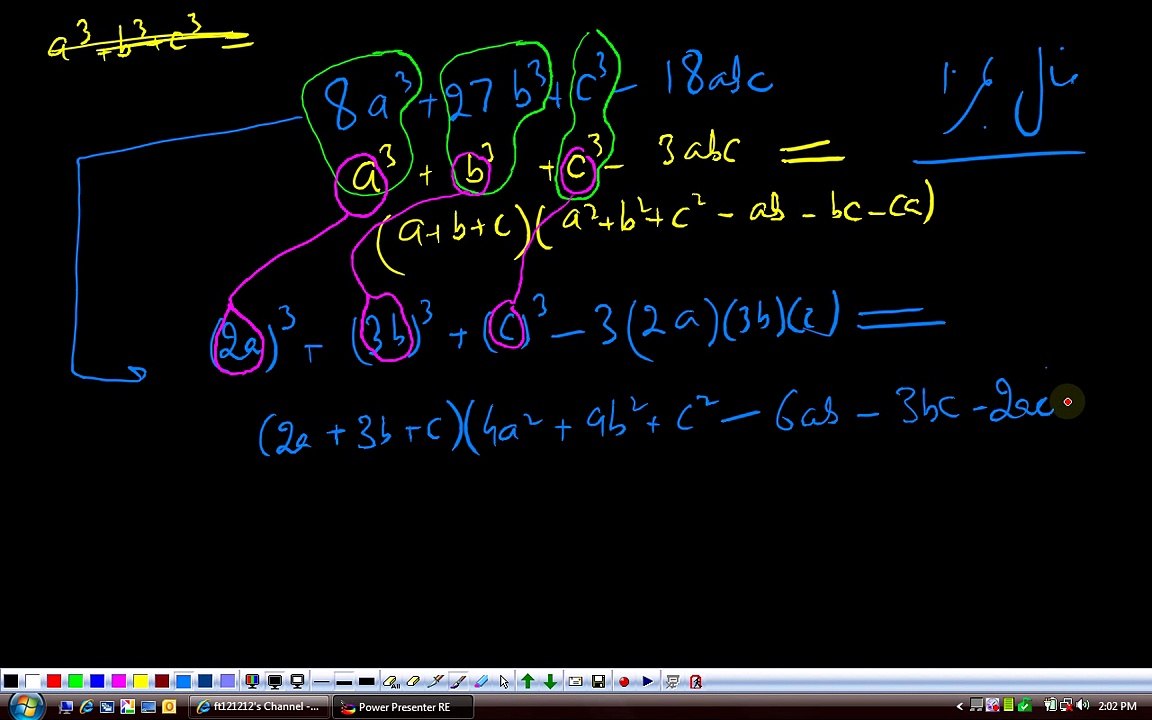 a³ + b³ + c³ =
8a³ + 27b³ + c³ - 18abc
a³ + b³ + c³ - 3abc =
(a+b+c)(a²+b²+c² - ab - bc - ca)
(2a)³ + (3b)³ + (c)³ - 3(2a)(3b)(c) =
(2a + 3b + c)(4a² + 9b² + c² - 6ab - 3bc - 2ac
All
ft121212's Channel -...
Power Presenter RE
2:02 PM